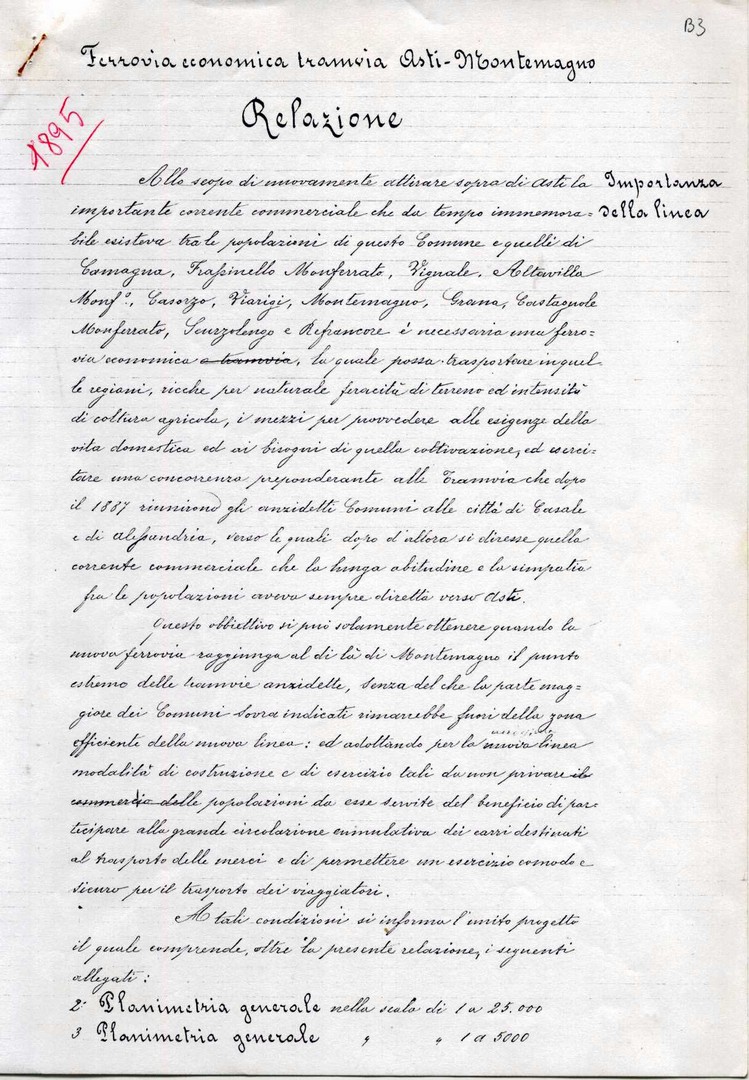 B3
Ferrovia economica tramvia Asti-Montemagno
Relazione
1895
Allo scopo di nuovamente attirare sopra di Asti la
Importanza
importante corrente commerciale che da tempo immemora=
della linea
bile esisteva tra le popolazioni di questo Comune e quelle di
Camagna, Frassinello Monferrato, Vignale, Altavilla
Monfº, Casorzo, Viarigi, Montemagno, Grana, Castagnole
Monferrato, Scurzolengo e Refrancore è necessaria una ferro=
via economica o tramvia, la quale possa trasportare in quel=
le regioni, ricche per naturale feracità di terreno ed intensità
di coltura agricola, i mezzi per provvedere alle esigenze della
vita domestica ed ai bisogni di quella coltivazione, ed eserci=
tare una concorrenza preponderante alle Tramvia che dopo
il 1887 riunirono gli anzidetti Comuni alle città di Casale
e di Alessandria, verso le quali dopo d'allora si diresse quella
corrente commerciale che la lunga abitudine e la simpatia
fra le popolazioni aveva sempre diretta verso Asti.
Questo obbiettivo si può solamente ottenere quando la
nuova ferrovia raggiunga al di là di Montemagno il punto
estremo delle tramvie anzidette, senza del che la parte mag=
giore dei Comuni sovra indicati rimarrebbe fuori della zona
efficiente della nuova linea: ed adottando per la nuova linea
modalità di costruzione e di esercizio tali da non privare il
commercio delle popolazioni da esse servite del beneficio di par=
tecipare alla grande circolazione cumulativa dei carri destinati
al trasporto delle merci e di permettere un esercizio comodo e
sicuro per il trasporto dei viaggiatori.
A tali condizioni si informa l'unito progetto
il quale comprende, oltre la presente relazione, i seguenti
allegati:
2º Planimetria generale nella scala di 1 a 25.000
3 Planimetria generale " " 1 a 5000